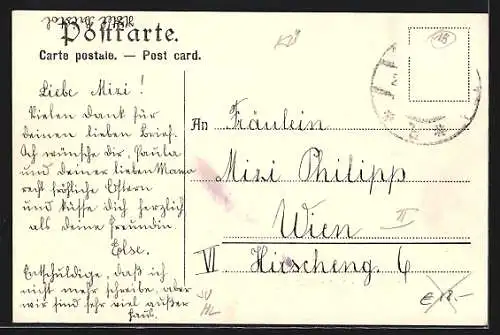 Hôtel Bristol
Postkarte.
Carte postale. — Post card.
Liebe Mizi!
Vielen Dank für
deinen lieben Brief.
Ich wünsche dir, Paula
und deiner lieben Mama
recht fröhliche Ostern
und küsse dich herzlich
als deine Freundin
Else.
Entschuldige, daß ich
nicht mehr schreibe, aber
wir sind sehr viel außer
Haus.
An Fräulein
Mizi Philipp
Wien
II
VI Hirscheng. 6
13